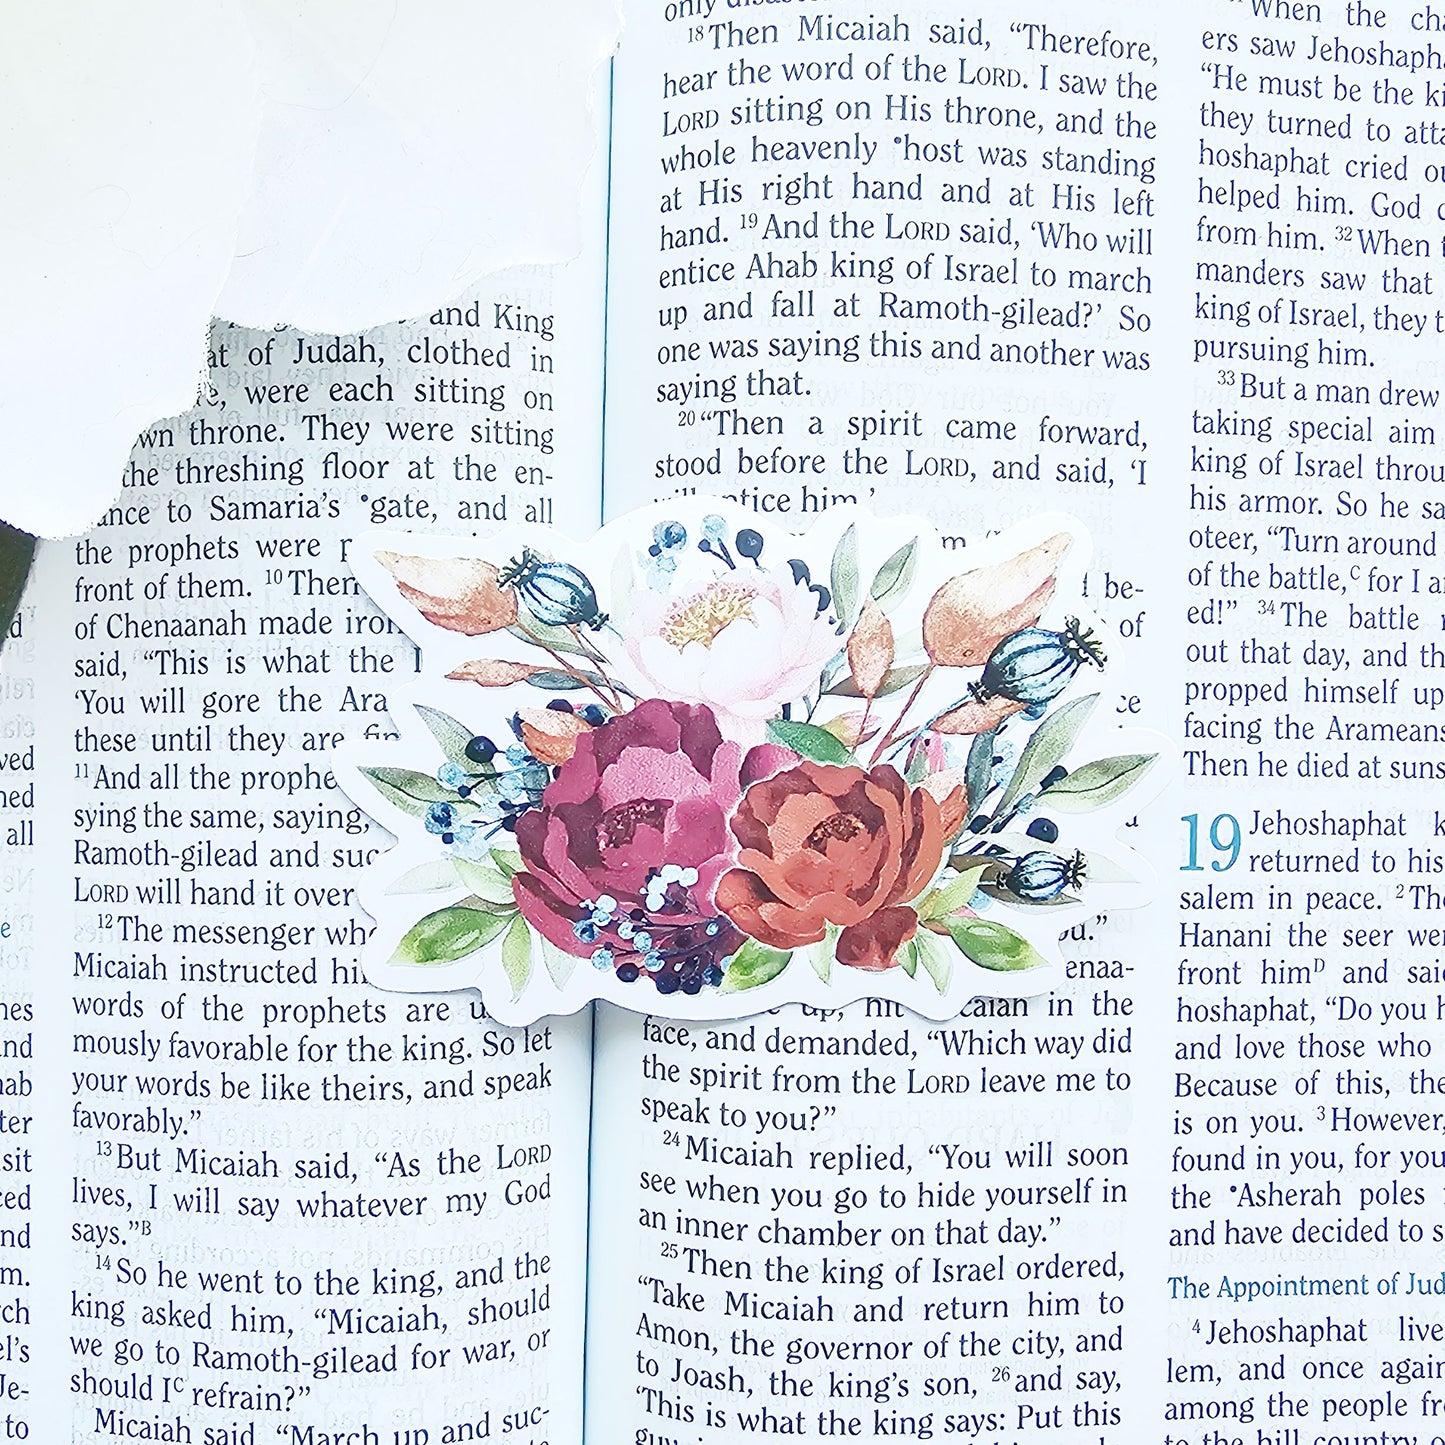 ved
ned
all
e
nes
and
hab
ter
sit
ced
nd
m.
rch
el's
Je-
to
and King
at of Judah, clothed in
were each sitting on
own throne. They were sitting
the threshing floor at the en-
ance to Samaria's •gate, and all
the prophets were
front of them. 10 Then
of Chenaanah made iron
said, “This is what the
‘You will gore the Ara
these until they are
11 And all the prophe
sying the same, saying,
Ramoth-gilead and suc
LORD will hand it over
12 The messenger who
Micaiah instructed hi
words of the prophets are u
mously favorable for the king. So let
your words be like theirs, and speak
favorably.”
13 But Micaiah said, “As the LORD
lives, I will say whatever my God
says.”B
14 So he went to the king, and the
king asked him, “Micaiah, should
we go to Ramoth-gilead for war, or
should I C refrain?”
Micaiah said, “March up and suc-
only
18 Then Micaiah said, “Therefore,
hear the word of the LORD. I saw the
LORD sitting on His throne, and the
whole heavenly •host was standing
at His right hand and at His left
hand. 19 And the LORD said, ‘Who will
entice Ahab king of Israel to march
up and fall at Ramoth-gilead?’ So
one was saying this and another was
saying that.
20 “Then a spirit came forward,
stood before the LORD, and said, ‘I
will entice him.’
be-
of
ce
ou.”
enaa-
up, hit Micaiah in the
face, and demanded, “Which way did
the spirit from the LORD leave me to
speak to you?”
24 Micaiah replied, “You will soon
see when you go to hide yourself in
an inner chamber on that day.”
25 Then the king of Israel ordered,
“Take Micaiah and return him to
Amon, the governor of the city, and
to Joash, the king’s son, 26 and say,
‘This is what the king says: Put this
When the cha
ers saw Jehoshapha
“He must be the ki
they turned to atta
hoshaphat cried ou
helped him. God
from him. 32 When t
manders saw that
king of Israel, they t
pursuing him.
33 But a man drew
taking special aim
king of Israel throu
his armor. So he sa
oteer, “Turn around
of the battle,C for I a
ed!” 34 The battle
out that day, and th
propped himself up
facing the Arameans
Then he died at suns
19 Jehoshaphat k
returned to his
salem in peace. 2 The
Hanani the seer wen
front him D and said
hoshaphat, “Do you h
and love those who
Because of this, the
is on you. 3 However,
found in you, for you
the •Asherah poles
and have decided to s
The Appointment of Jud
4 Jehoshaphat live
lem, and once again
among the people fro
to the hill country o